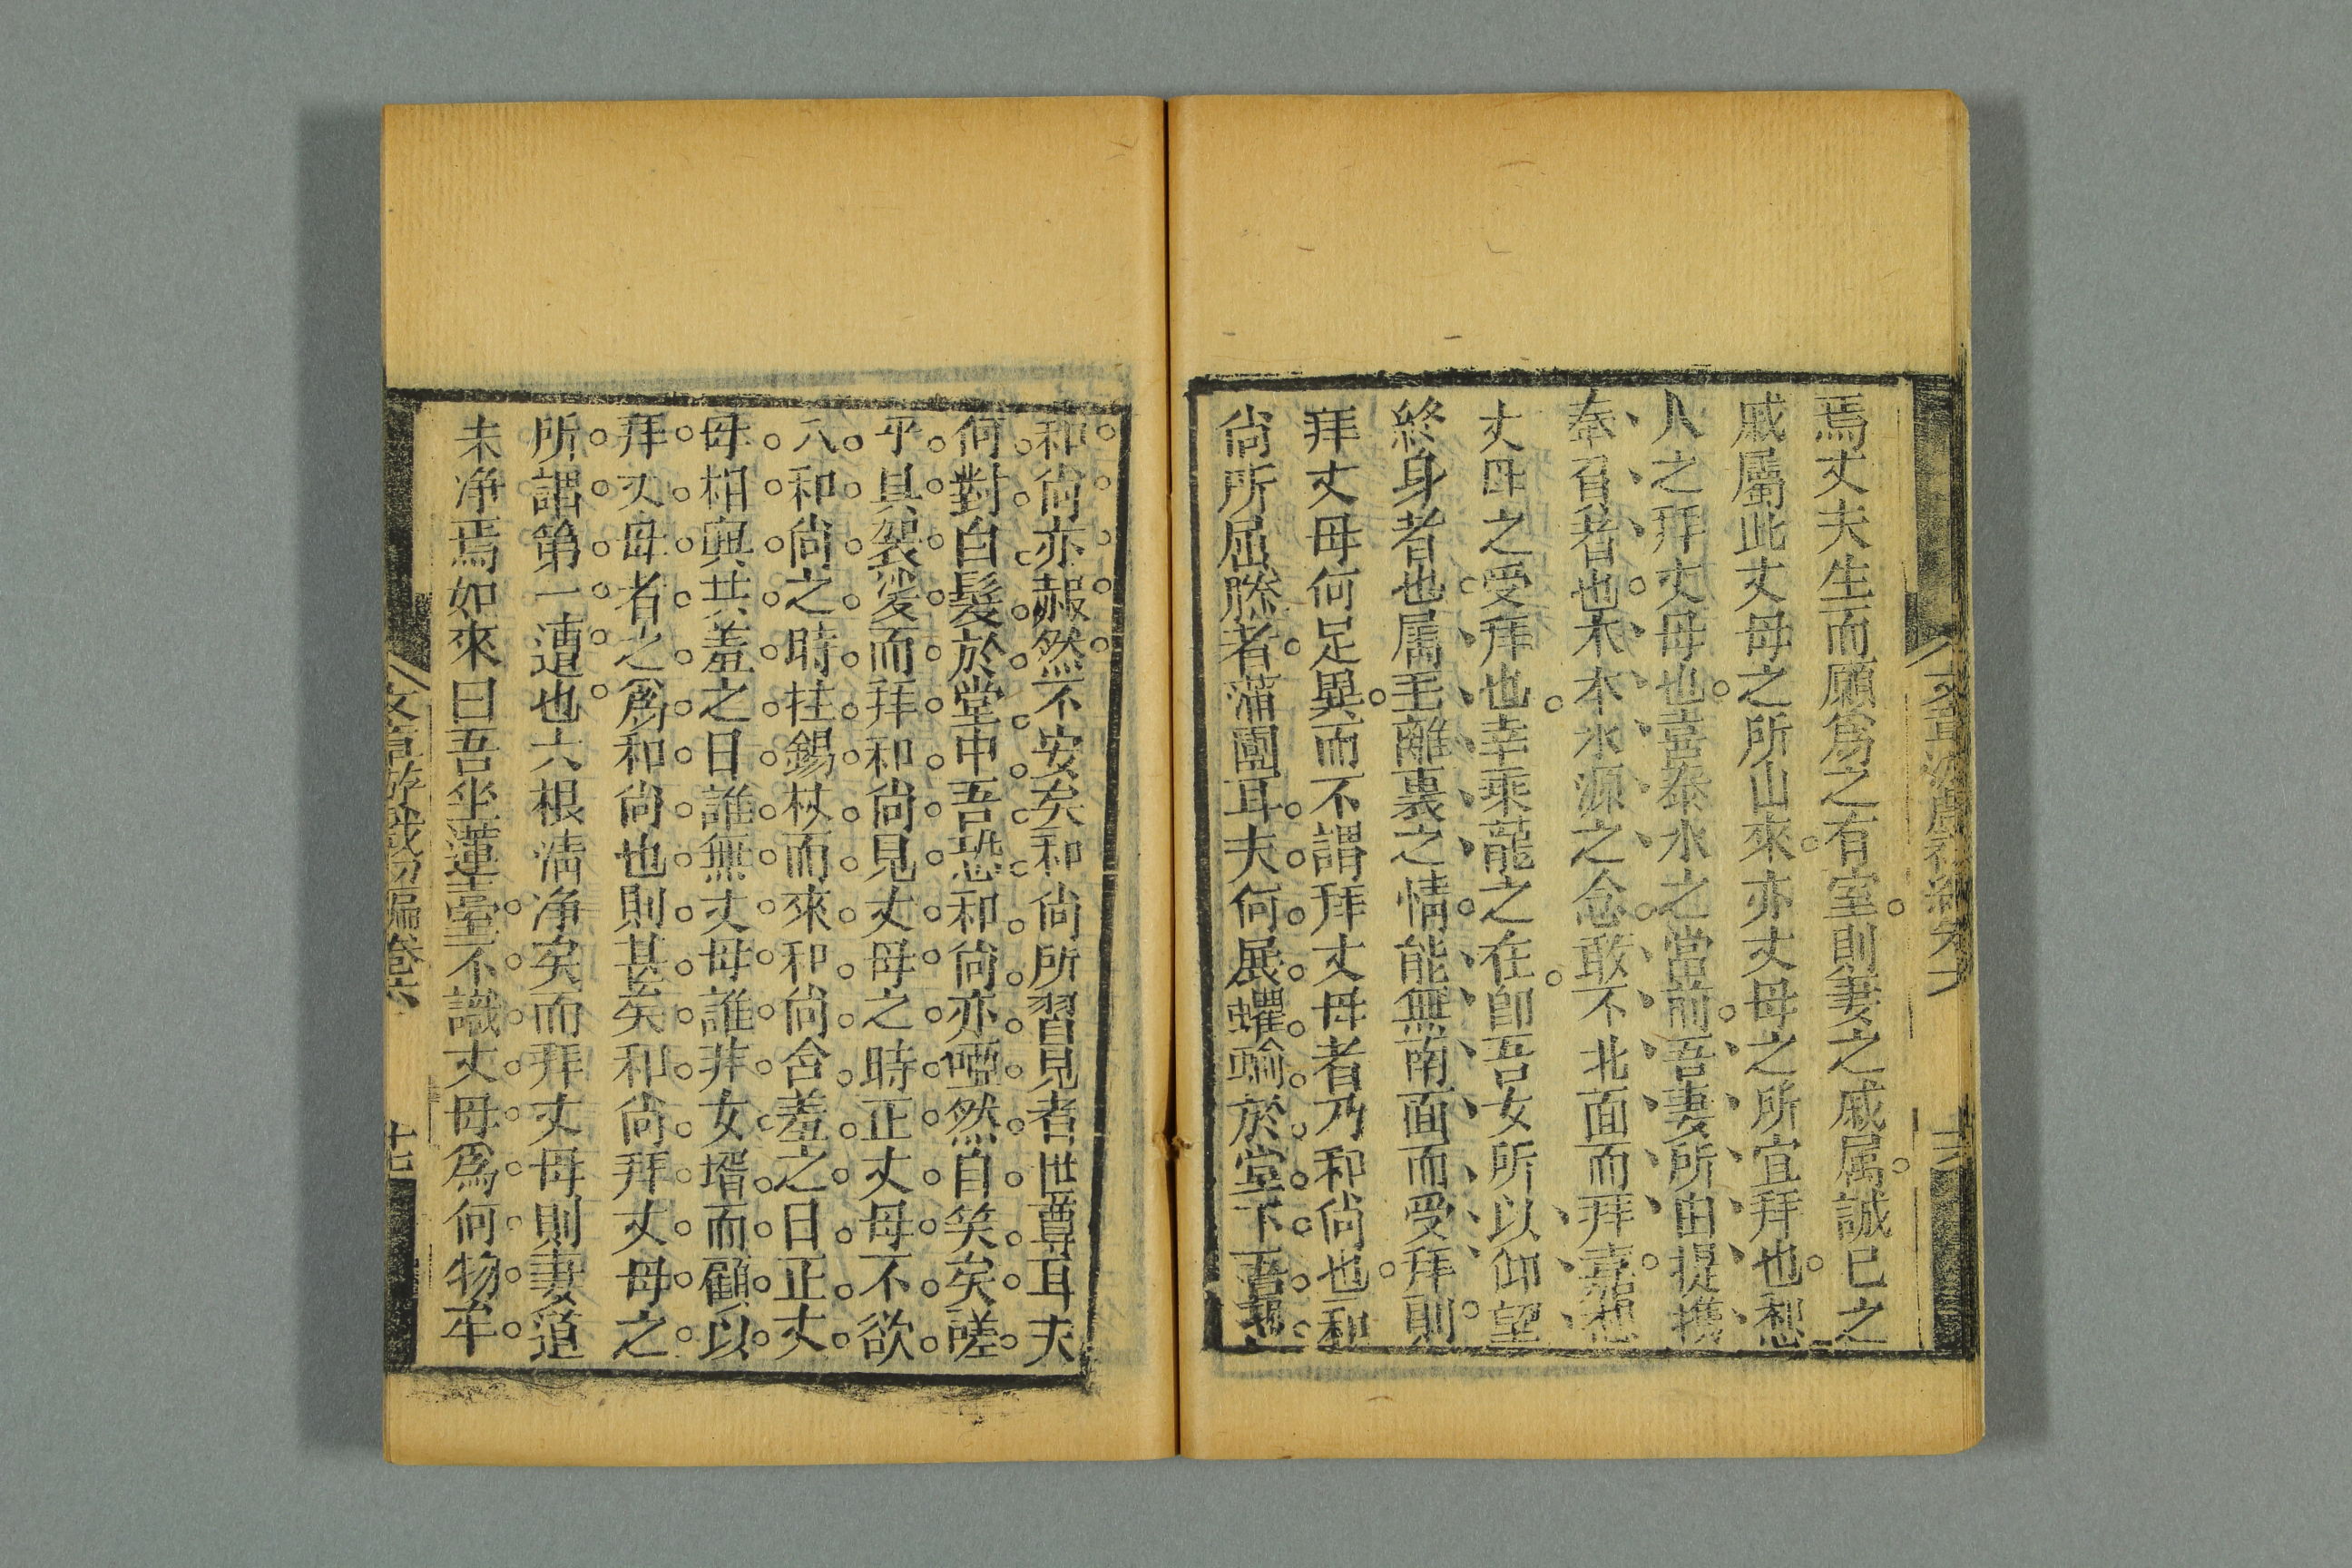 焉丈夫生而願爲之有室則妻之戚属誠巳之
戚屬此丈母之所由來亦丈母之所宜拜也想
人之拜丈母也喜泰水之當前吾妻所由提攜
奉君者也木本水源之念敢不北面而拜嘉想
丈母之受拜也幸乘龍之在卽吾女所以仰望
終身者也属毛離裏之情能無南面而受拜則
拜丈母何足異而不謂拜丈母者乃和尙也和
尙所屈膝者蒲團耳夫何展氍毹於堂下吾
和尙亦赧然不安矣和尙所習見者世尊耳夫
何對白髮於堂中吾恐和尙亦啞然自笑矣嗟
乎具袈裟而拜和尙見丈母之時正丈母不欲
入和尙之時拄錫杖而來和尙含羞之日正丈
母相與共羞之日誰無丈母誰非女壻而顧以
拜丈母者之爲和尙也則甚矣和尙拜丈母之
所謂第一遭也六根淸净矣而拜丈母則妻道
未净焉如來曰吾坐蓮臺不識丈母爲何物牟
文章游戲初編卷六